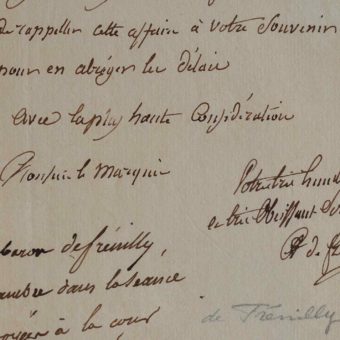 de rappeller cette affaire à votre souvenir
pour en abréger les délais
avec la plus haute Considération
Monsieur le Marquis
Votre très hum
et très Obéissant Se
baron de frénilly,
dans la séance
à la cour
de Frénilly